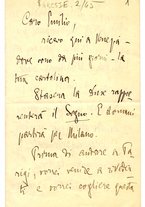 Caro Emilio,
ricevo qui a Venezia -
dove sono da più giorni - la
tua cartolina.
Stasera la Duse rappre
senterà il Sogno. E domani
partirà per Milano.
Prima di andare a Pa
rigi, vorrei venire a
e vorrei cogliere questa